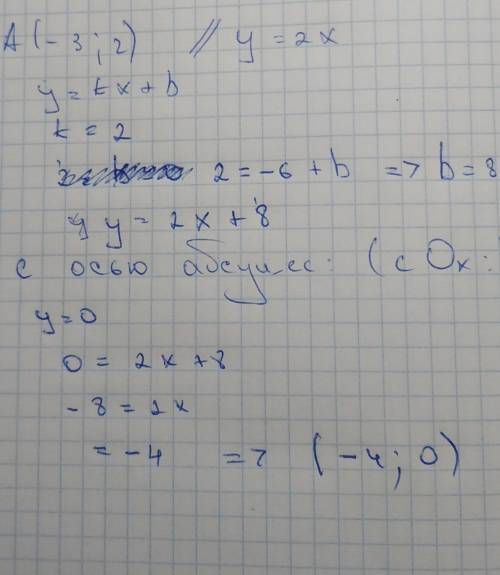 A (-3; 2) // y = 2x
y = kx + b
k = 2
2 = -6 + b => b = 8
y = 2x + 8
с осью абсцисс: (с Ox:
y = 0
0 = 2x + 8
-8 = 2x
= -4 => (-4; 0)